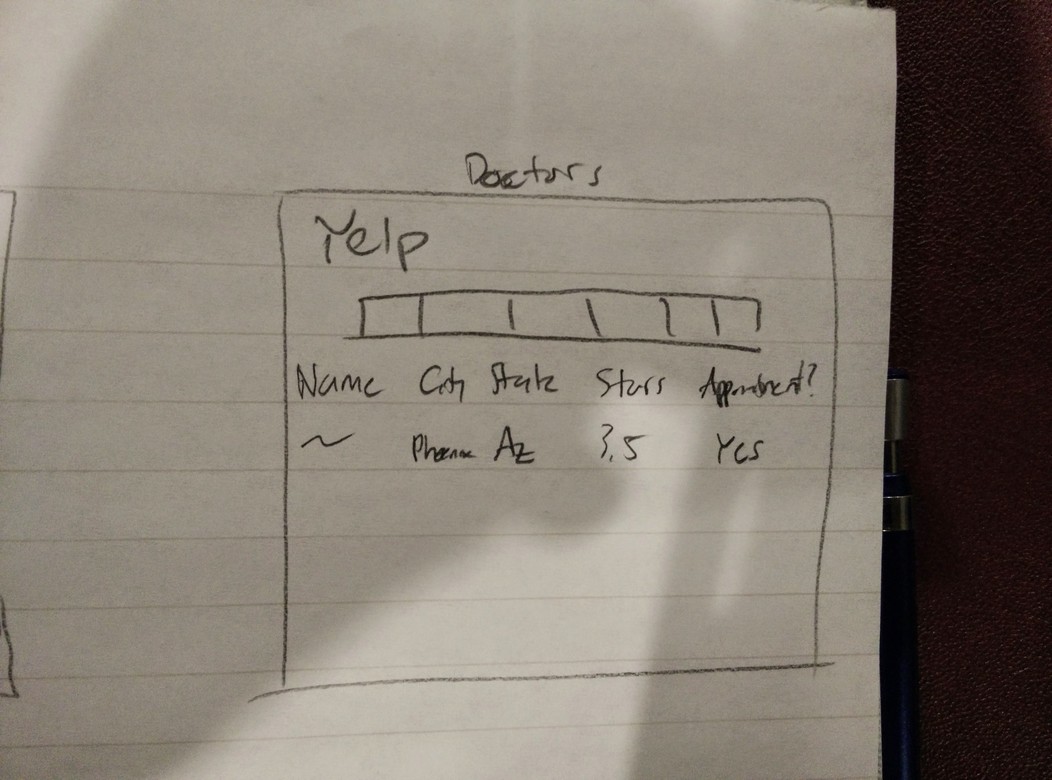 Doctors
Yelp
Name City State Stars Appointment?
~ Phoenix Az 3.5 Yes